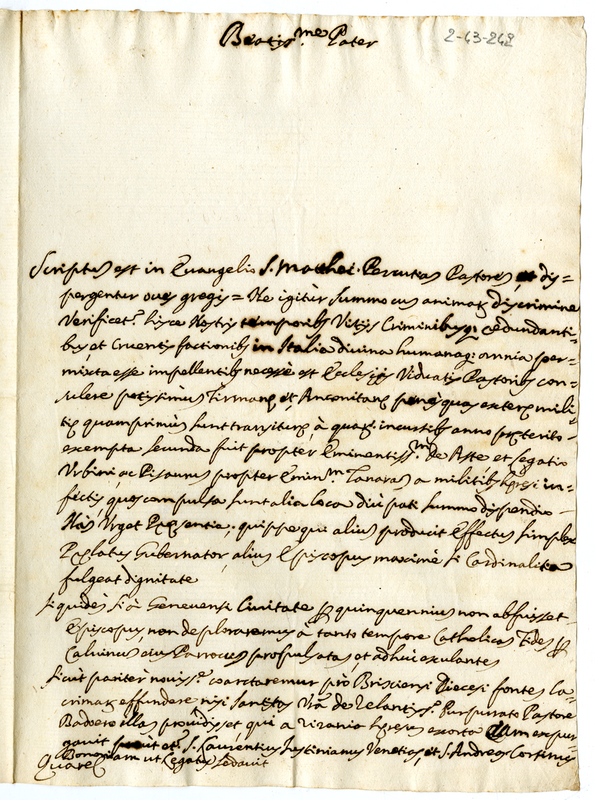 Beatis.me Pater
2-43-248
Scriptus est in Evangelio S. Mathei. Percutias Pastores et dis=
pergentur oves gregis = Ne igitur summo cus animaz discrimine
Verificet.r hisce Nostris temporibs Vitijs Criminibusq; redundanti=
bus, et Cruentis factionibs in Italia divina humanaq; omnia per=
mixta esse impellentibs necesse est Ecclesijs Viduatis Pastoribs con=
sulere potissimus Firmanę et Anconitanę quas exterę mili=
tię quamprimus sunt transiturę, à quaz incursibs anno pręterito
exempta secunda fuit propter Eminentiss.m De Aste et Legatio
Urbini ac Pisauri propter Emin.m Tanaras a militibs in=
fectis, ques compulsa sunt alia loca diu pati summo dispendio
Nas Urget Pręsentia; quippe qui alius producit effectus simplex
Pręlatus Gubernator, alius Episcopus maximè si Cardinalitia
fulgeat dignitate
Siquides si à Genevensi Civitate p quinquennius non abfuisset
Episcopus non deploraremus à tanto tempore Catholicas Fides p
Calvinus eius Parrocus profulsatas et adhuc exulantes
Sicut pariter noviss.e coarctaremur prò Brisciensi Diecesi fontes La=
crimaz effundere, nisi Sanctitas Vra de Zelantiss.o Purpurato Pastore
Badoero illas providisset qui a Zizania exorta iam expur=
gavit sicuit et S. Laurentius Justinianus Venetias, et S. Andreas Corsinus
Bononiam ut Legatus sedavit
Quare